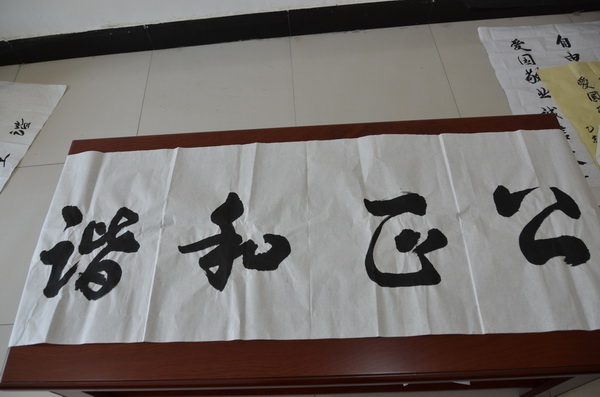 公正和谐
自由
爱国敬业诚
爱國
谐